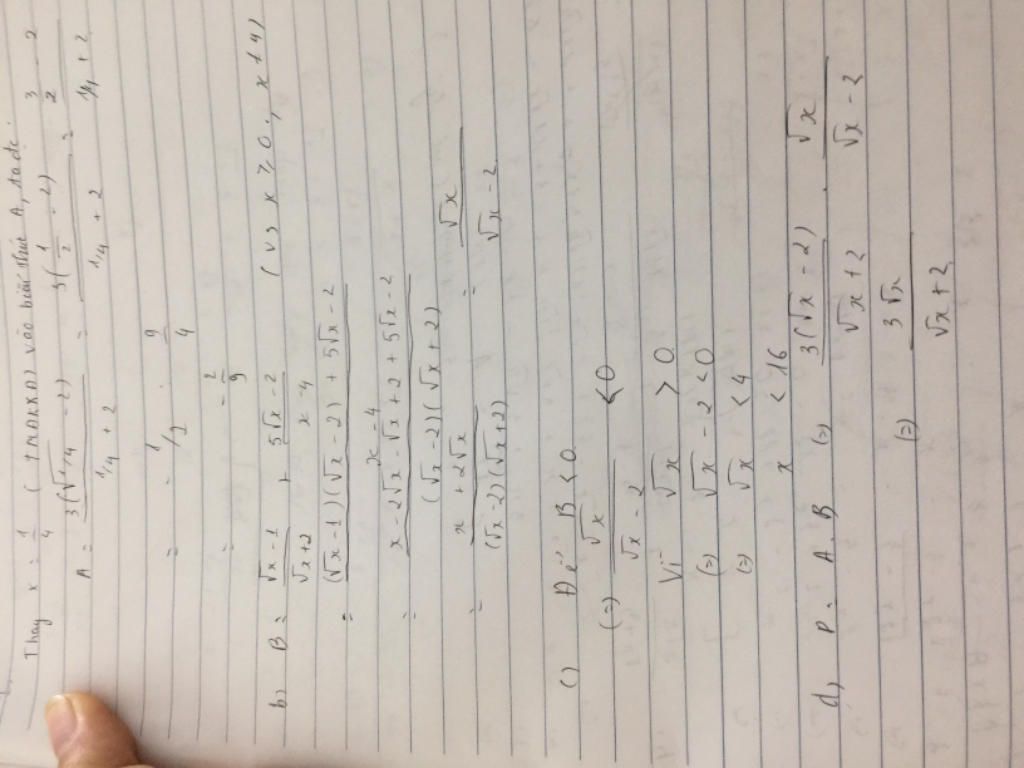 Thay x = 1/4 (TMĐKXĐ) vào biểu thức A, ta đc:
A = 3(√1/4 - 2) / 1/4 + 2 = 3(1/2 - 2) / 1/4 + 2 = 3/2 - 2 / 1/4 + 2
= - 1/2 : 9/4
= - 2/9
b) B = √x - 1 / √x + 2 + 5√x - 2 / x - 4 (với x ≥ 0, x ≠ 4)
= (√x - 1)(√x - 2) + 5√x - 2 / x - 4
= x - 2√x - √x + 2 + 5√x - 2 / (√x - 2)(√x + 2)
= x + 2√x / (√x - 2)(√x + 2) = √x / √x - 2
c) Để B < 0
(=) √x / √x - 2 < 0
Vì √x > 0
(=) √x - 2 < 0
(=) √x < 4
x < 16
d, P = A . B (=) 3(√x - 2) / √x + 2 . √x / √x - 2
(=) 3√x / √x + 2